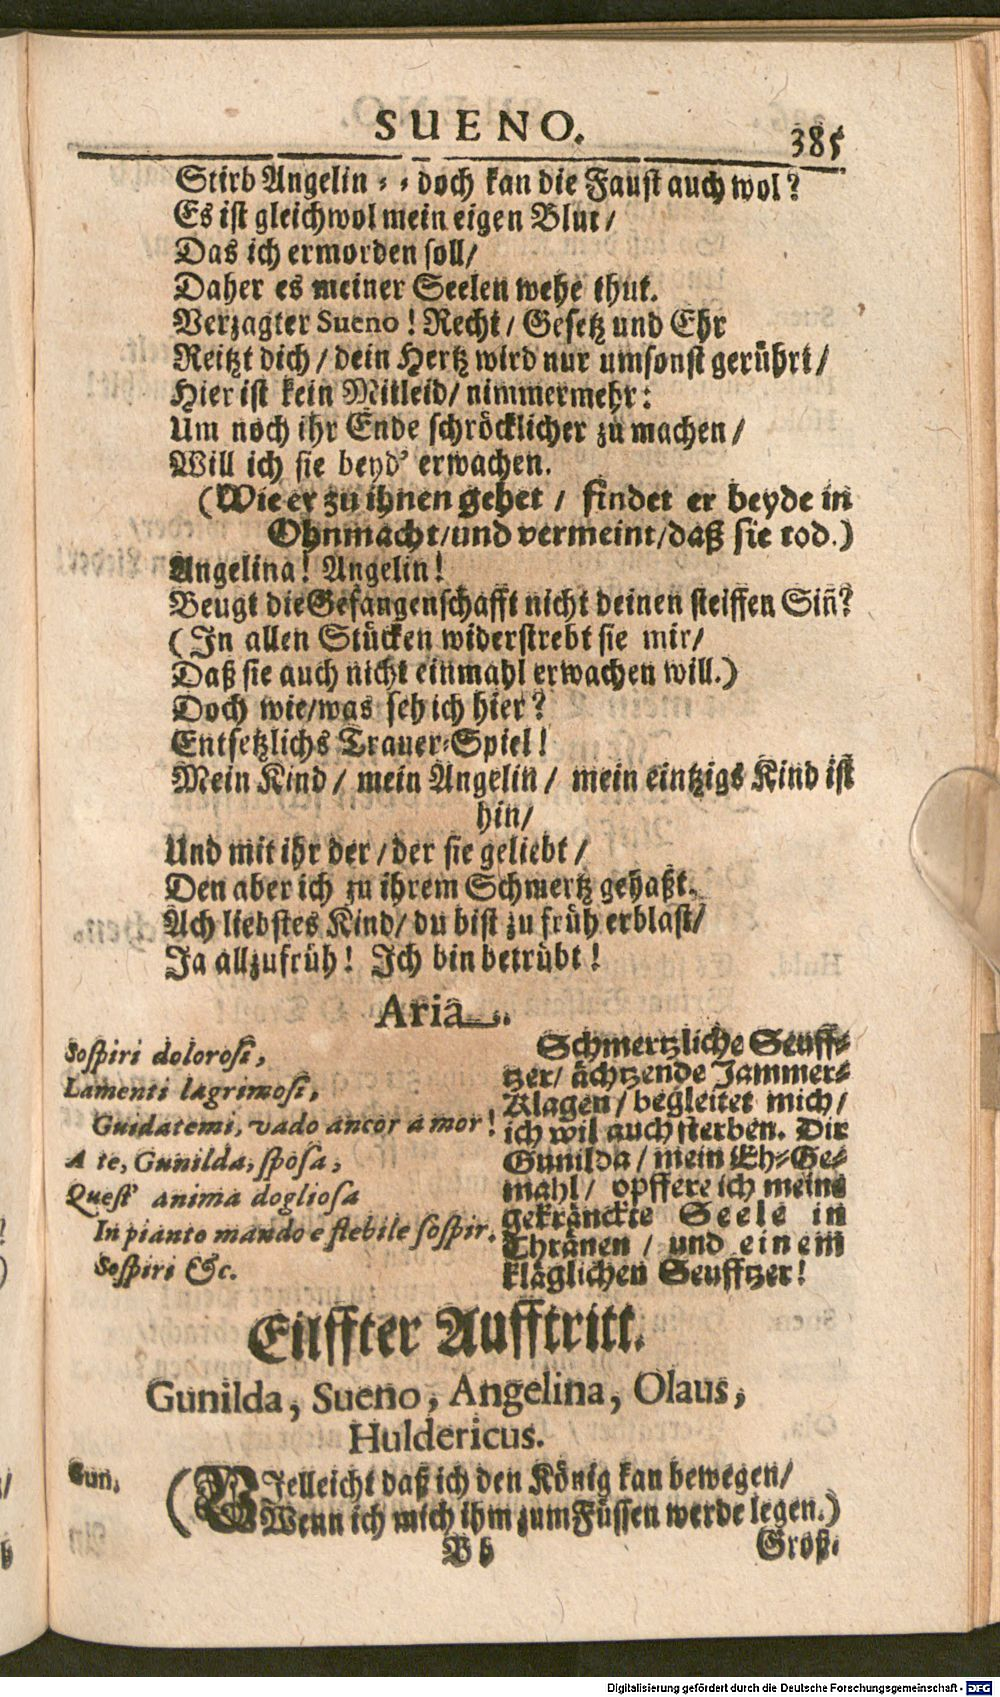 SUENO. 385
Stirb Angelin ⸗ ⸗ doch kan die Faust auch wol?
Es ist gleichwol mein eigen Blut/
Das ich ermorden soll/
Daher es meiner Seelen wehe thut.
Verzagter Sueno! Recht/ Gesetz und Ehr
Reitzt dich/ dein Hertz wird nur umsonst gerührt/
Hier ist kein Mitleid/ nimmermehr:
Um noch ihr Ende schröcklicher zu machen/
Will ich sie beyd' erwachen.
(Wie er zu ihnen gehet/ findet er beyde in
Ohnmacht/und vermeint/daß sie tod.)
Angelina! Angelin!
Beugt die Gefangenschafft nicht deinen steiffen Siñ?
(In allen Stücken widerstrebt sie mir/
Daß sie auch nicht einmahl erwachen will.)
Doch wie/was seh ich hier?
Entsetzlichs Trauer⸗Spiel!
Mein Kind/ mein Angelin/ mein eintzigs Kind ist
hin/
Und mit ihr der/der sie geliebt/
Den aber ich zu ihrem Schmertz gehaßt.
Ach liebstes Kind/ du bist zu früh erblast/
Ja allzufrüh! Ich bin betrübt!
Aria.
Sospiri dolorosi,
Lamenti lagrimosi,
Guidatemi, vado ancor a mor!
A te, Gunilda, sposa,
Quest' anima dogliosa
In pianto mando e flebile sospir.
Sospiri &c.
Schmertzliche Seuff⸗
tzer/ ächtzende Jammer⸗
Klagen/ begleitet mich/
ich wil auch sterben. Dir
Gunilda/ mein Eh⸗Ge⸗
mahl/ opffere ich meine
gekränckte Seele in
Thränen/ und einem
kläglichen Seufftzer!
Eilffter Aufftritt.
Gunilda, Sueno, Angelina, Olaus,
Huldericus.
Gun. (Vielleicht daß ich den König kan bewegen/
Wenn ich mich ihm zum Füssen werde legen.)
B b Groß⸗
Digitalisierung gefördert durch die Deutsche Forschungsgemeinschaft - DFG